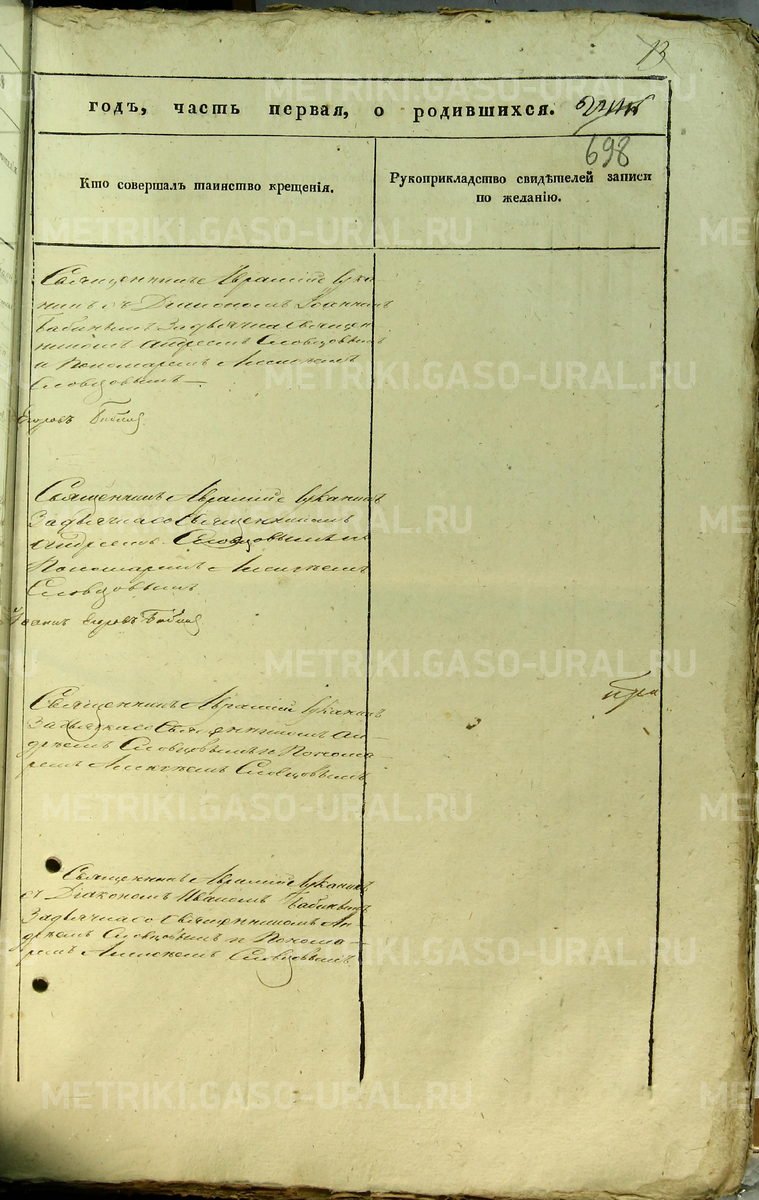 13
годъ, часть первая, о родившихся.
698
Кто совершалъ таинство крещенія.
Рукоприкладство свидѣтелей записи
по желанію.
Священникъ Аврамій Лука-
нинъ съ Діакономъ Іоанномъ
Бабинымъ За дьячка священ
никомъ Андреемъ Словцовымъ
и Пономаремъ Алексѣемъ
Словцовымъ
Священникъ Аврамій Луканинъ
За дьячка со Священникомъ
Андреемъ Словцовымъ и
Пономаремъ Алексѣемъ
Словцовымъ
Іоаннъ
Священникъ Аврамій Луканинъ
За дьячка со Священникомъ Ан
дреемъ Словцовымъ и Понома-
ремъ Алексѣемъ Словцовымъ
Священникъ Аврамій Луканинъ
съ Діакономъ Иваномъ Бабинымъ
За дьячка со Священникомъ Ан
дреемъ Словцовымъ и Понома-
ремъ Алексѣемъ Словцовымъ
METRIKI.GASO-URAL.RU